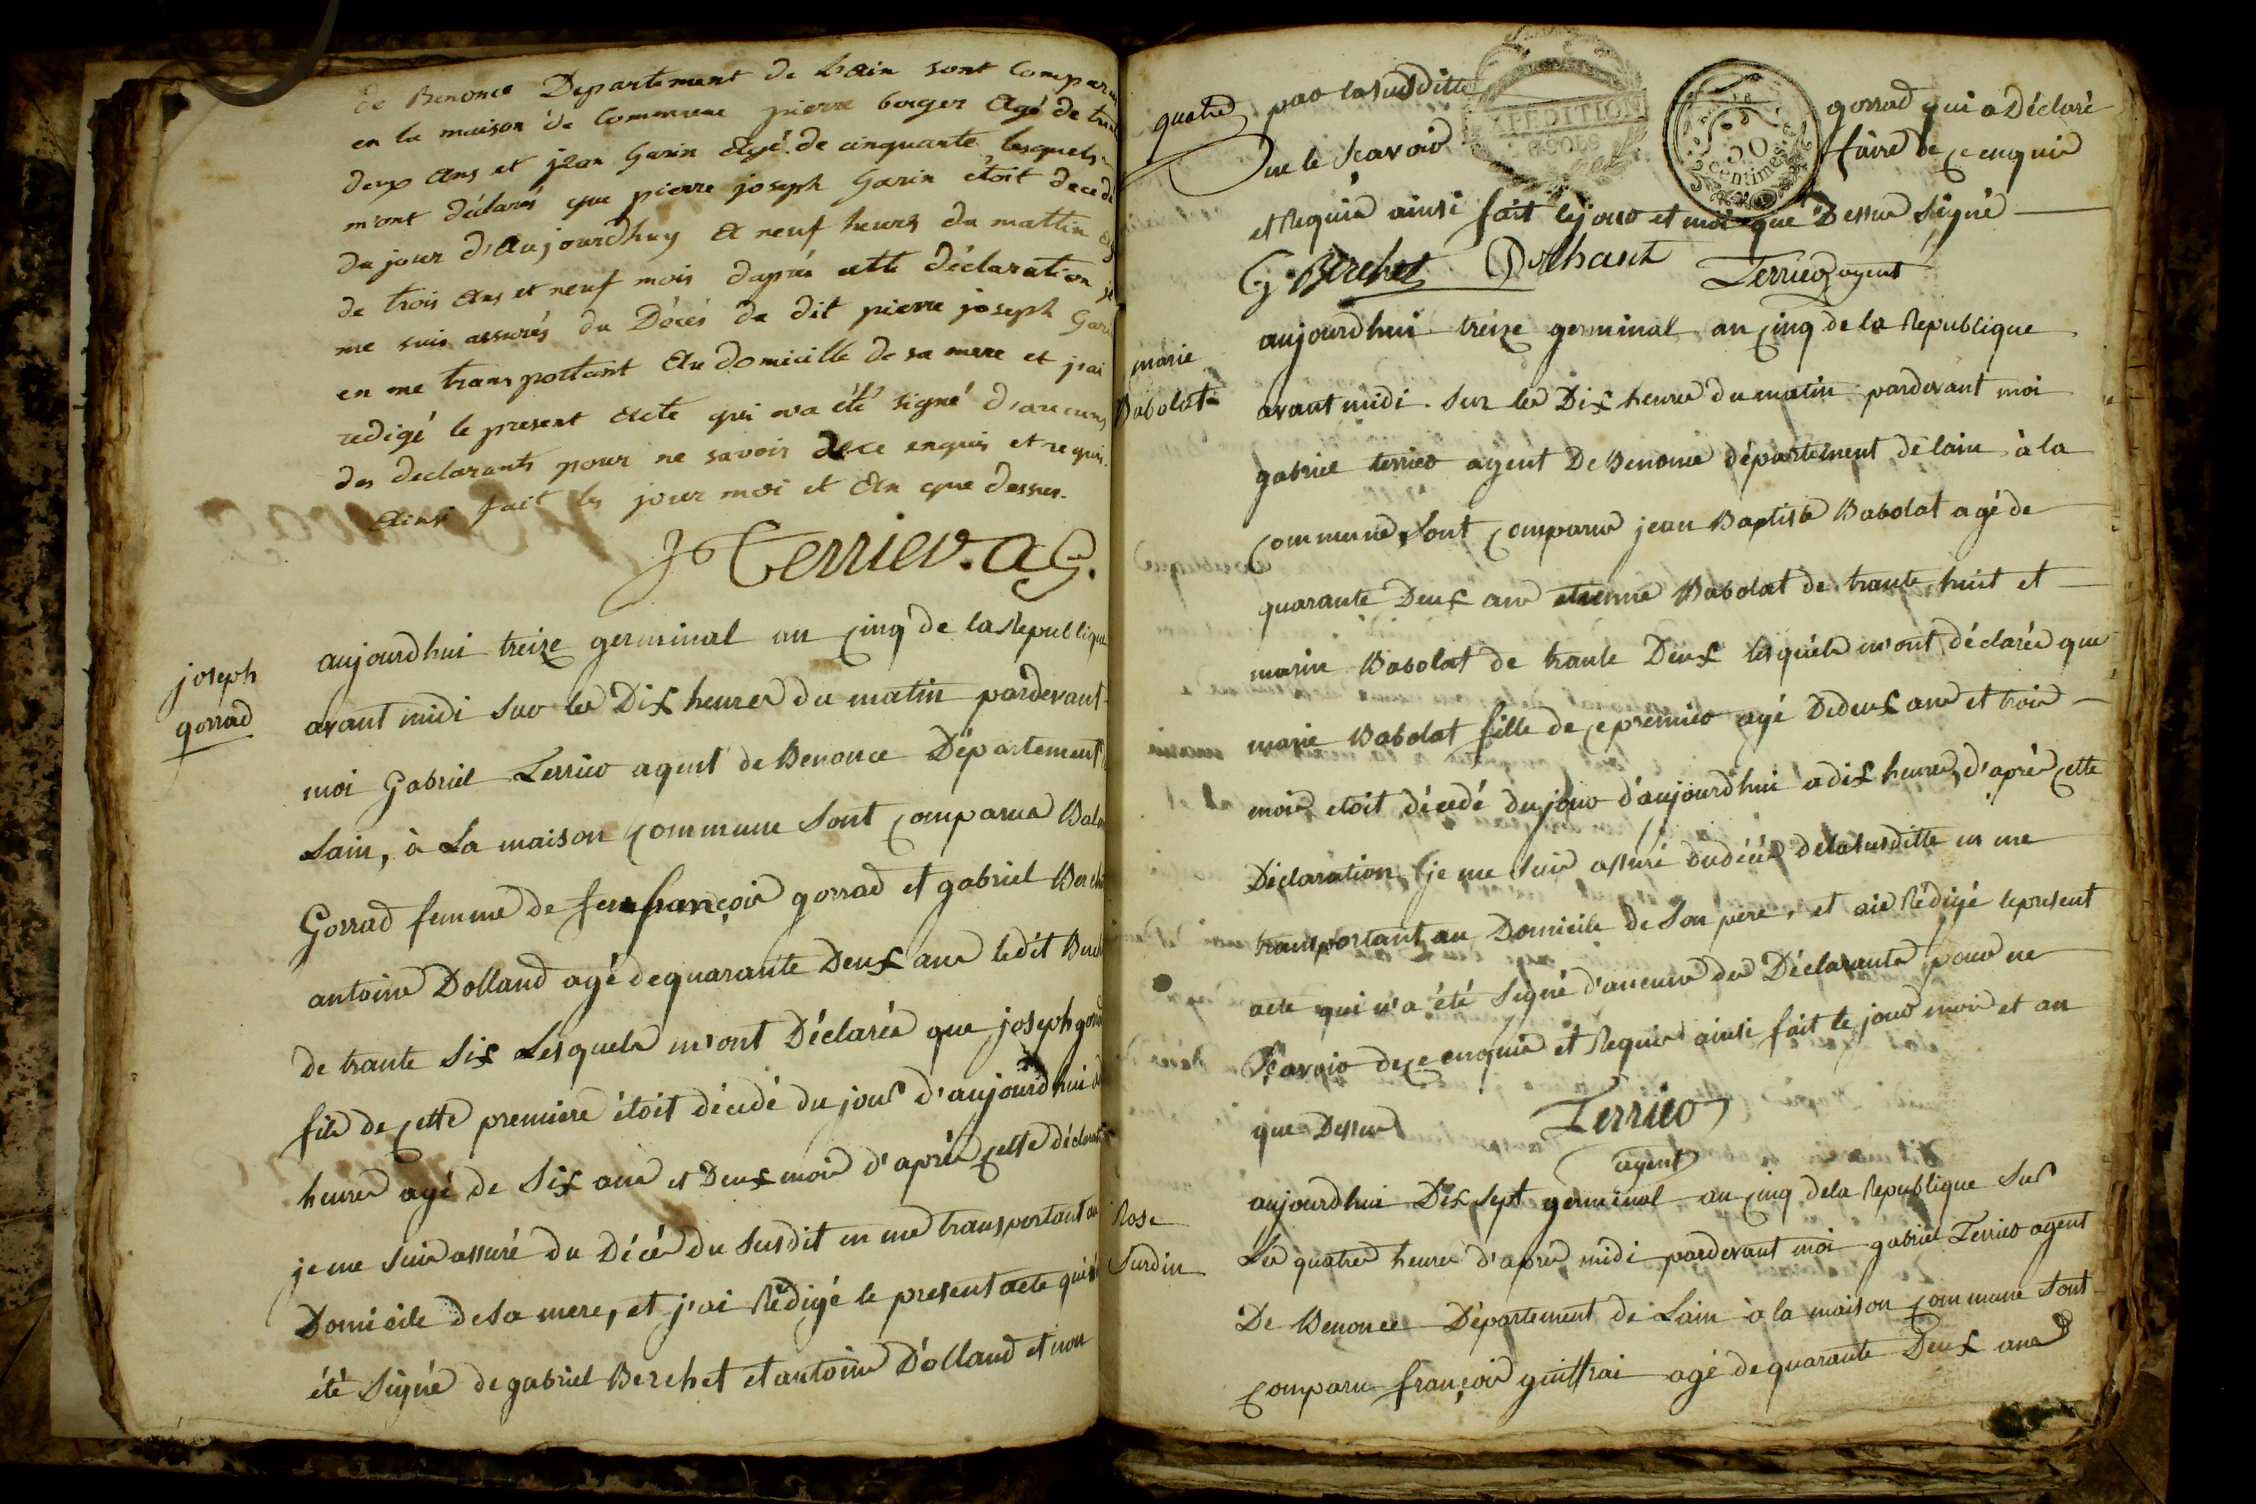 de Benonce Departement de Lain sont comparu
en la maison de Commune pierre berger Agé de trente
deux Ans et jean Garin Agé de cinquante lesquels
m'ont déclarés que pierre joseph Garin étoit decedé
du jour d'Aujourdhuy A neuf heures du mattin
de trois Ans et neuf mois daprés cette déclaration je
me suis assurés du Décés da dit pierre joseph Garin
en me transportant Au domicille de sa mere et j'ai
redigé le present Acte qui na été signé d'aucuns
des declarants pour ne savoir de ce enquis et requis.
Ainsi fait les jour moi et An que dessus.
Terrier. ag.
joseph
gorrad
aujourdhui treize germinal an cinq de la Republique
avant midi sur les Dix heures du matin pardevant
moi Gabriel Terrier agent de Benonce Département
Lain, à La maison commune sont comparus
Gorrad femme de feu françois gorrad et gabriel Berchet
antoine Dolland agé de quarante Deux ans ledit
de trante Six Lesquels m'ont Déclarés que joseph gorrad
fils de cette premiere étoit décédé du jour d'aujourdhui
heures agé de Six ans et Deux mois d'après cette déclaration
je me suis assuré du Décès du susdit en me transportant au
Domicile de sa mere, et j'ai Rédigé le present acte qui
été Signé de gabriel Berchet et antoine Dolland et non
quatre
par la susditte gorrad qui a Déclaré
ne le Scavoir faire de ce enquis
EXPÉDITION
50
centimes
et Requis ainsi fait le jour et moi que Dessus Signé
G Berchet Terrier agent
marie
Babolat
aujourdhui treize germinal an cinq de la Republique
avant midi sur les Dix heures du matin pardevant moi
gabriel terrier agent De Benonce département de lain à la
commune, sont comparus jean Baptiste Babolat agé de
quarante Deux ans etienne Babolat de trante huit et
marin Babolat de trante Deux lesquels m'ont déclarés que
marie Babolat fille de ce premier agé De deux ans et trois
mois etoit décédé du jour d'aujourdhui a dix heures, d'après cette
Déclaration je me suis assuré du décès de la susditte en me
transportant au Domicile de son pere, et ais Rédigé le present
acte qui n'a été Signé d'aucuns des Déclarants pour ne
Scavoir de ce enquis et Requis ainsi fait le jour mois et an
que Dessus Terrier
agent
Rose
Surdin
aujourdhui Dix sept germinal an cinq de la Republique Sur
Les quatre heures d'après midi pardevant moi gabriel Terrier agent
De Benonce Département de Lain à la maison commune sont
comparu françois guiffrai agé de quarante Deux ans